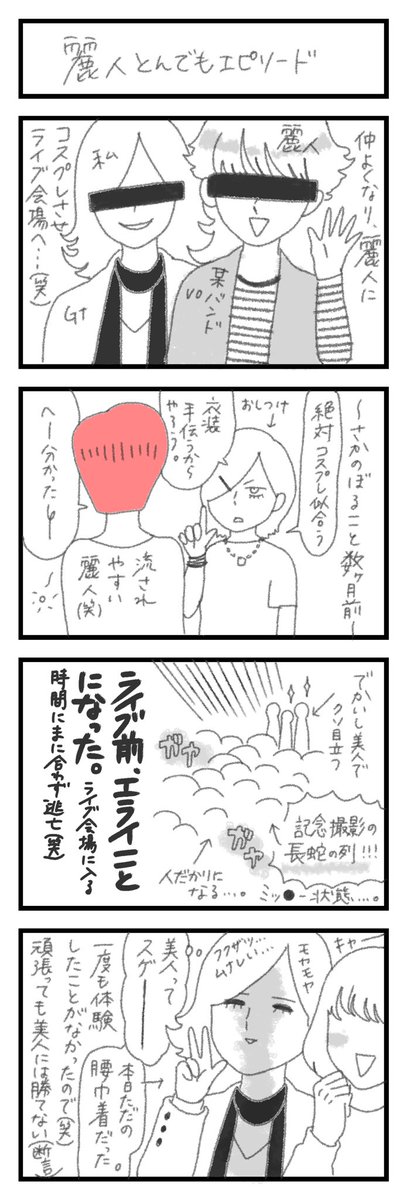 麗人とんでもエピソード
仲よくなり、麗人に
コスプレさせ
ライブ会場へ…(笑)
麗人
私
某バンド
VO
Gt
〜さかのぼること数ヶ月前〜
絶対コスプレ似合う
おしつけ
衣装
手伝うから
やろう。
へー分かったし
流され
やすい
麗人(笑)
でかいし美人で
クソ目立つ
ガヤ
ガヤ
記念撮影の
長蛇の列!!!
人だかりに
なる…。
ミッ●ー状態…。
ライブ前、エライこと
になった。
ライブ会場に入る
時間にまに合わず逃亡(笑)
キャー
モヤモヤ
フクザツ…
ムナしい…
美人って
スゲーー
本日ただの
腰巾着だった。
一度も体験
したことがなかったので(笑)
頑張っても美人には勝てない(断言)